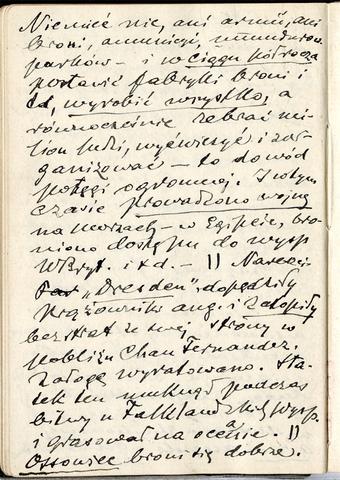 Nie mieć nic, ani armii, ani
broni, amunicji, mundurów
parków – i w ciągu półrocza
postawić fabryki broni i
td, wyrobić wszystko, a
równocześnie zebrać mi-
lion ludzi, wyćwiczyć i zor-
ganizować – to dowód
potęgi ogromnej. I w tym
czasie prowadzono wojnę
na morzach – w Egipcie, bro-
niono dostępu do wysp
W Bryt. i t d. – || Nareszcie
"Dresden" dopędziły
krążowniki ang. i zatopiły
bez strat ze swej strony w
pobliżu Chan Fernandez.
Załogę wyratowano. Sta-
tek ten umknął podczas
bitwy u Falklandzkich wysp
i grasował na oceanie. ||
Ossowiec broni się dobrze.